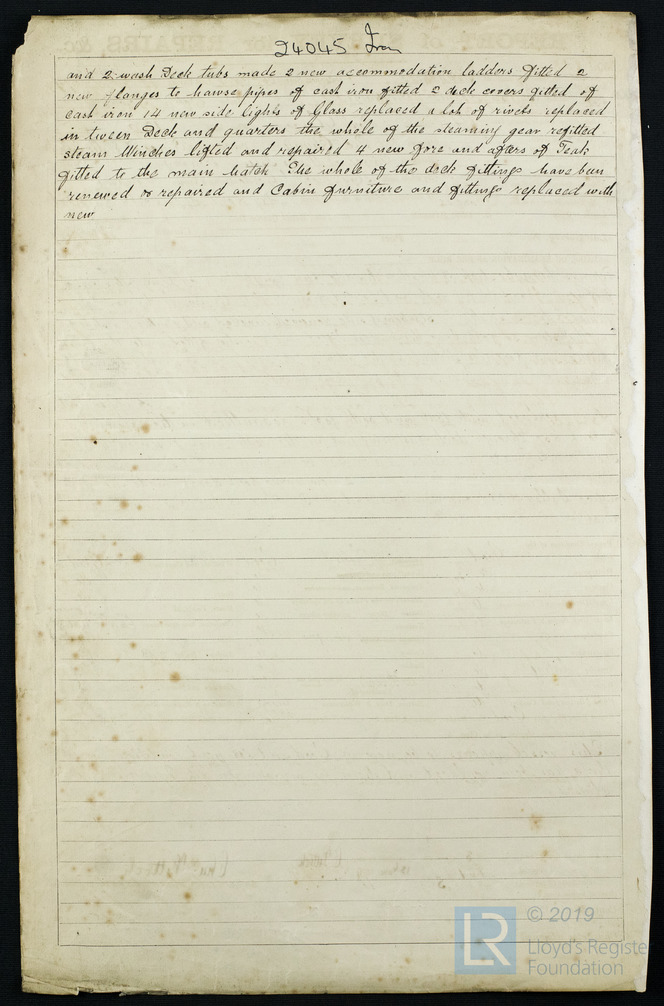 24045 Iron
and 2 wash Deck tubs made 2 new accommodation ladders fitted 2
new flanges to hawse pipes of cast iron fitted 2 deck covers fitted of
cast iron 14 new side lights of Glass replaced a lot of rivets replaced
in tween Deck and quarters the whole of the steaming gear refitted
steam Winches lifted and repaired 4 new fore and afters of Teak
fitted to the main hatch The whole of the deck fittings have been
renewed or repaired and Cabin furniture and fittings replaced with
new
LR
© 2019
Lloyd's Registe
Foundation